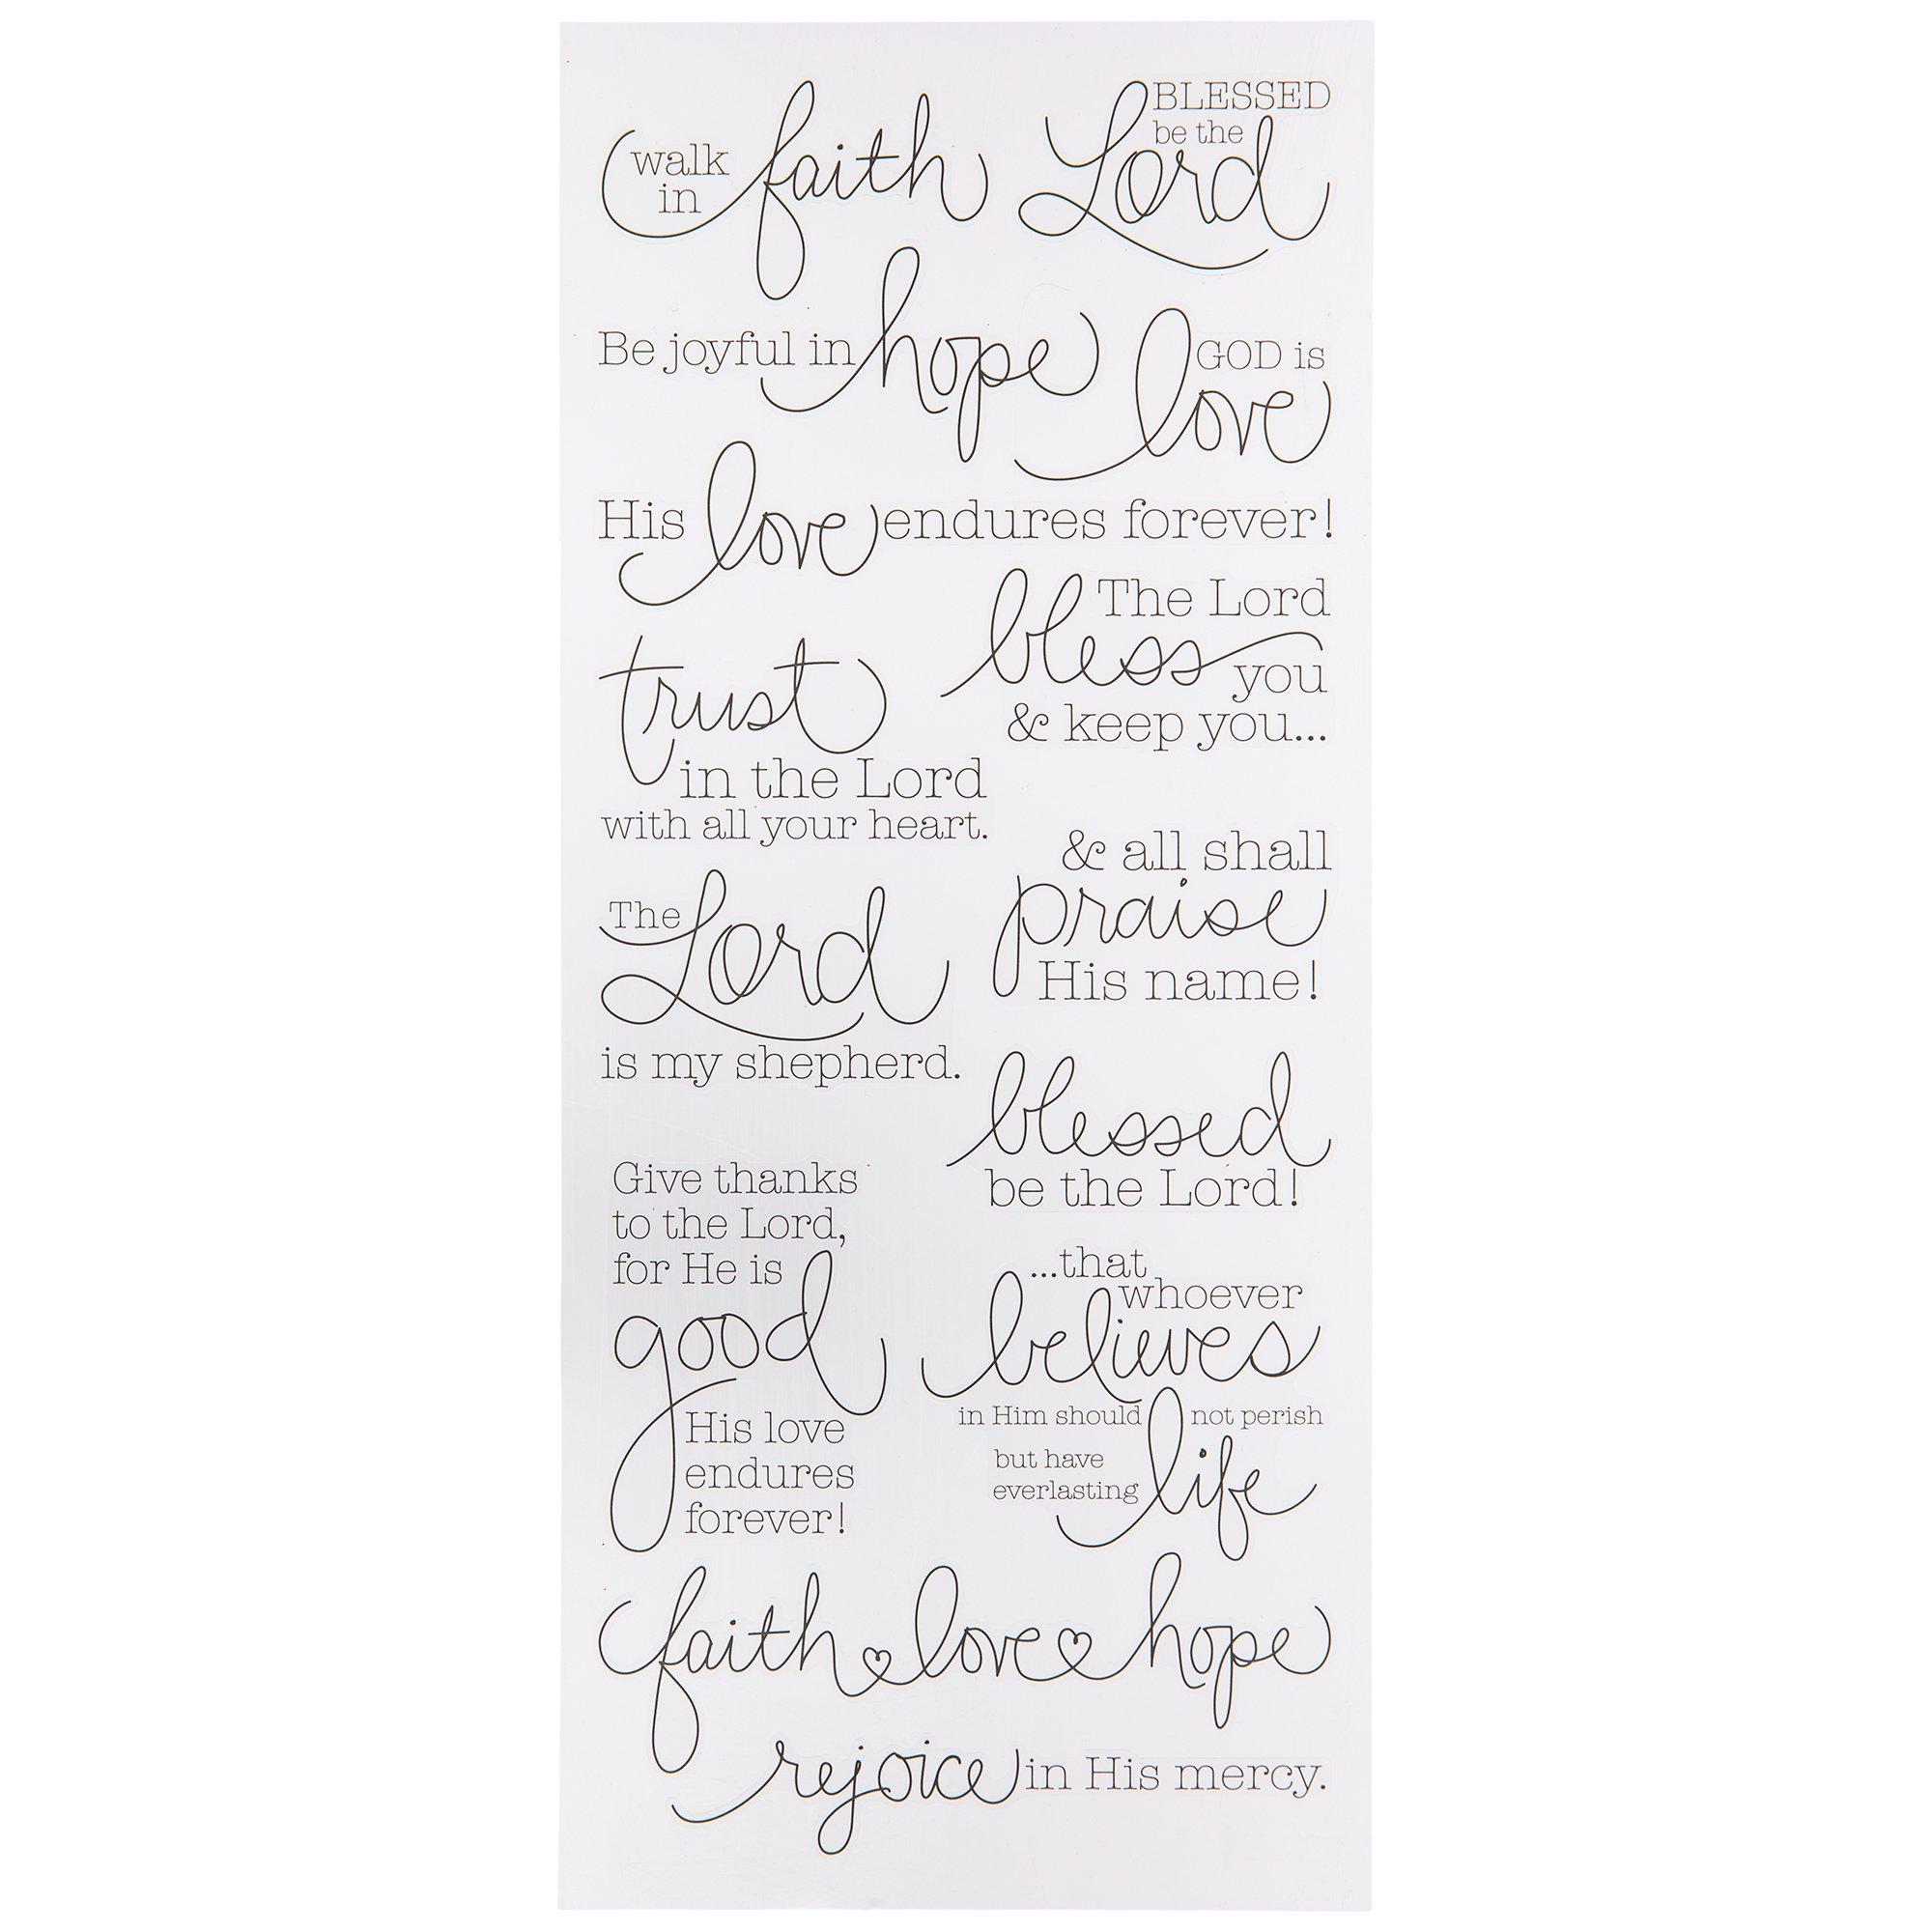 walk
in faith
BLESSED
be the
Lord
Be joyful in hope
GOD is
love
His love endures forever!
The Lord
bless you
& keep you...
trust
in the Lord
with all your heart.
& all shall
praise
His name!
The Lord
is my shepherd.
blessed
be the Lord!
Give thanks
to the Lord,
for He is
good
His love
endures
forever!
...that
whoever
believes
in Him should not perish
but have
everlasting life
faith love hope
rejoice in His mercy.